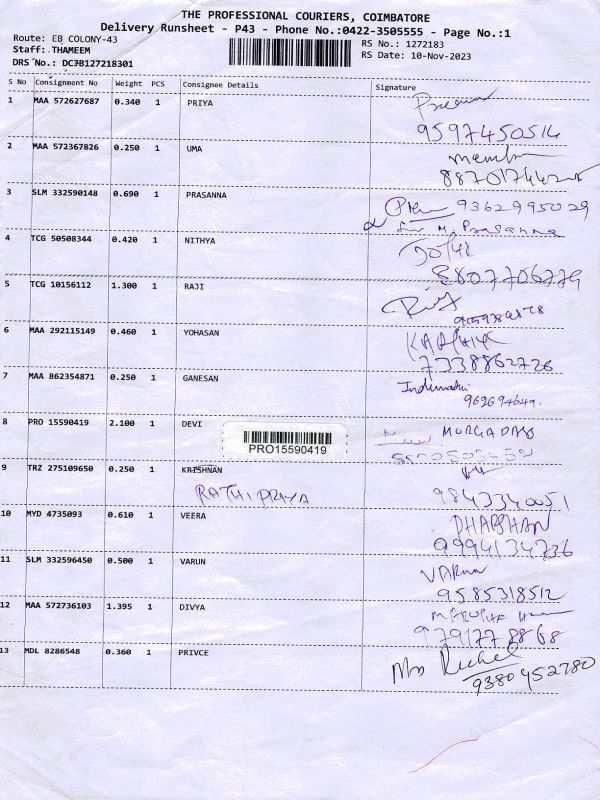 THE PROFESSIONAL COURIERS, COIMBATORE
Delivery Runsheet - P43 - Phone No.:0422-3505555 - Page No.:1
Route: EB COLONY-43
RS No.: 1272183
Staff: THAMEEM
RS Date: 10-Nov-2023
DRS No.: DCJB127218301
S No Consignment No Weight PCS Consignee Details Signature
1 MAA 572627687 0.340 1 PRIYA
9597450514
2 MAA 572367826 0.250 1 UMA
3 SLM 332590148 0.690 1 PRASANNA
9362995029
M. Prasanna
4 TCG 50508344 0.420 1 NITHYA
8807706779
5 TCG 10156112 1.300 1 RAJI
6 MAA 292115149 0.460 1 YOHASAN
7338862726
7 MAA 862354871 0.250 1 GANESAN
Indumathi
8 PRO 15590419 2.100 1 DEVI
PRO15590419
MURGADASS
9 TRZ 275109650 0.250 1 KRISHNAN
RATHI PRIYA
9843340051
10 MYD 4735093 0.610 1 VEERA
DHARSHAN
9994134736
11 SLM 332596450 0.500 1 VARUN
VARUN
9585318512
12 MAA 572736103 1.395 1 DIVYA
9791778868
13 MDL 8286548 0.360 1 PRIVCE
9380452780